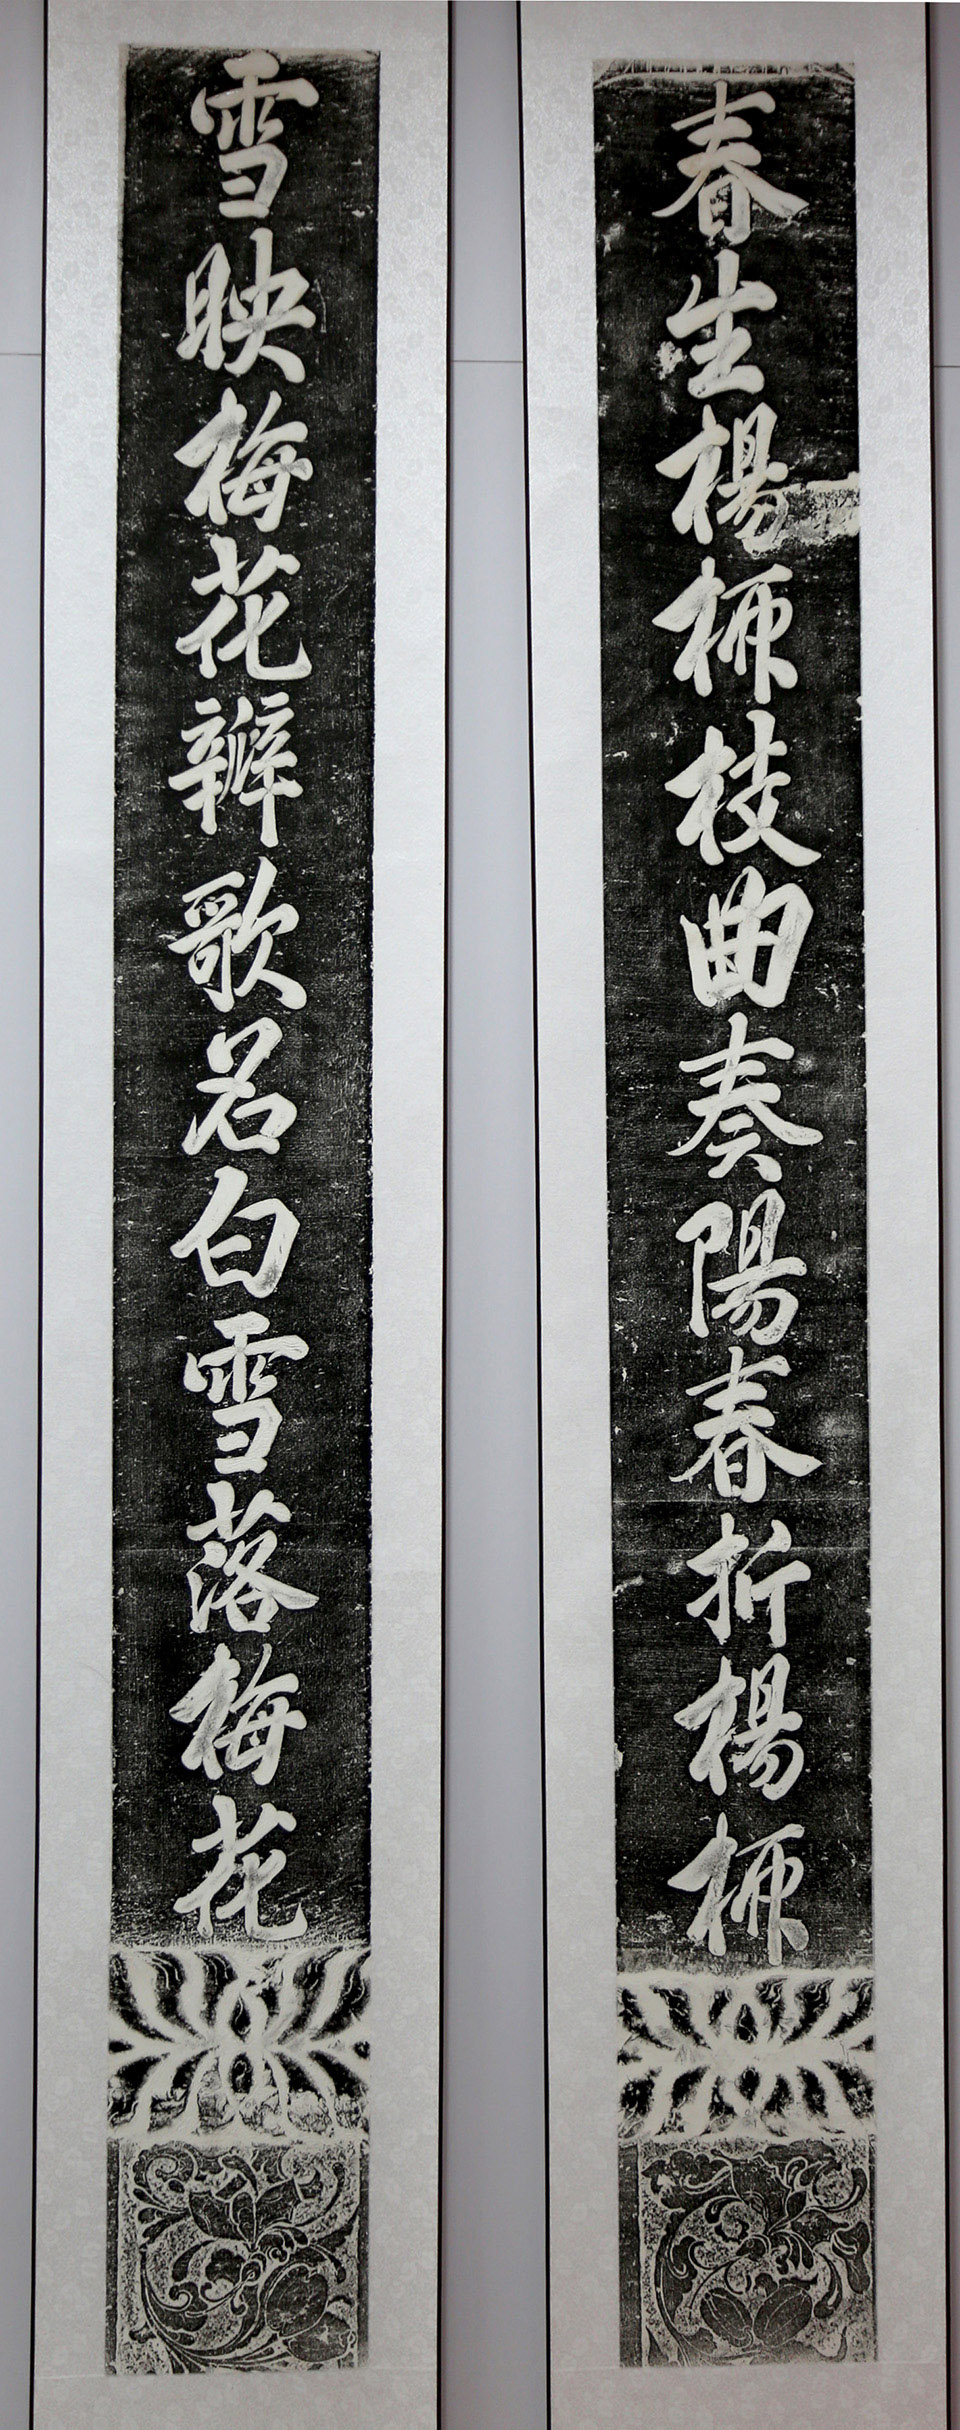 春生楊柳枝曲奏陽春折楊柳
雪映梅花瓣歌名白雪落梅花